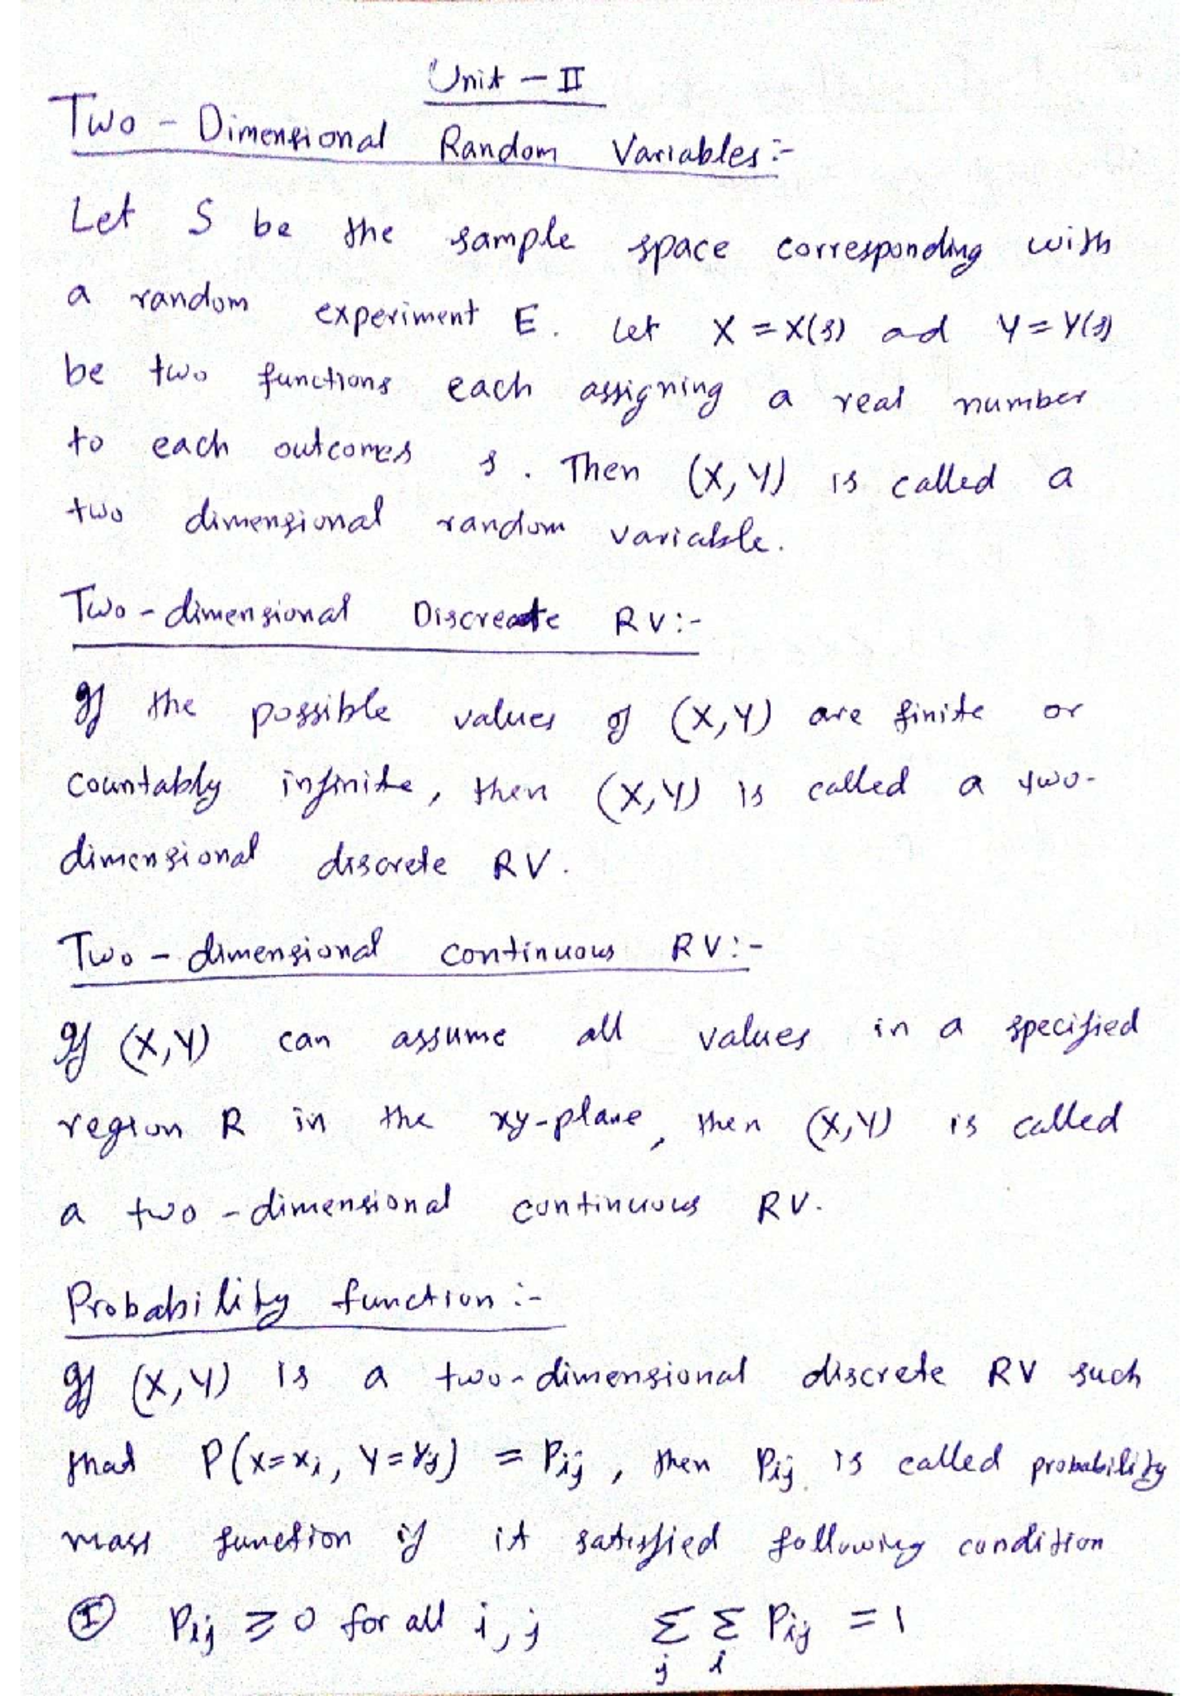 Unit - II
Two - Dimensional Random Variables :-
Let S be the sample space corresponding with
a random experiment E. Let X = X(s) ad Y = Y(s)
be two functions each assigning a real number
to each outcomes s. Then (X, Y) is called a
two dimensional random variable.
Two - dimensional Discreate RV :-
If the possible values of (X, Y) are finite or
countably infinite, then (X, Y) is called a two-
dimensional discrete RV.
Two - dimensional continuous RV :-
If (X, Y) can assume all values in a specified
region R in the xy-plane, then (X, Y) is called
a two - dimensional continuous RV.
Probability function :-
If (X, Y) is a two-dimensional discrete RV such
that P(X=xi, Y=Yj) = Pij, then Pij is called probability
mass function if it satisfied following condition
Ⓘ Pij ≥ 0 for all i, j Σj Σi Pij = 1